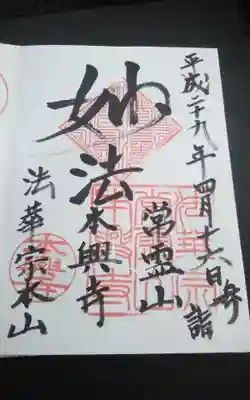 平成二十九年四月十六日拝詣
常霊山
妙法
本興寺
法華宗本山